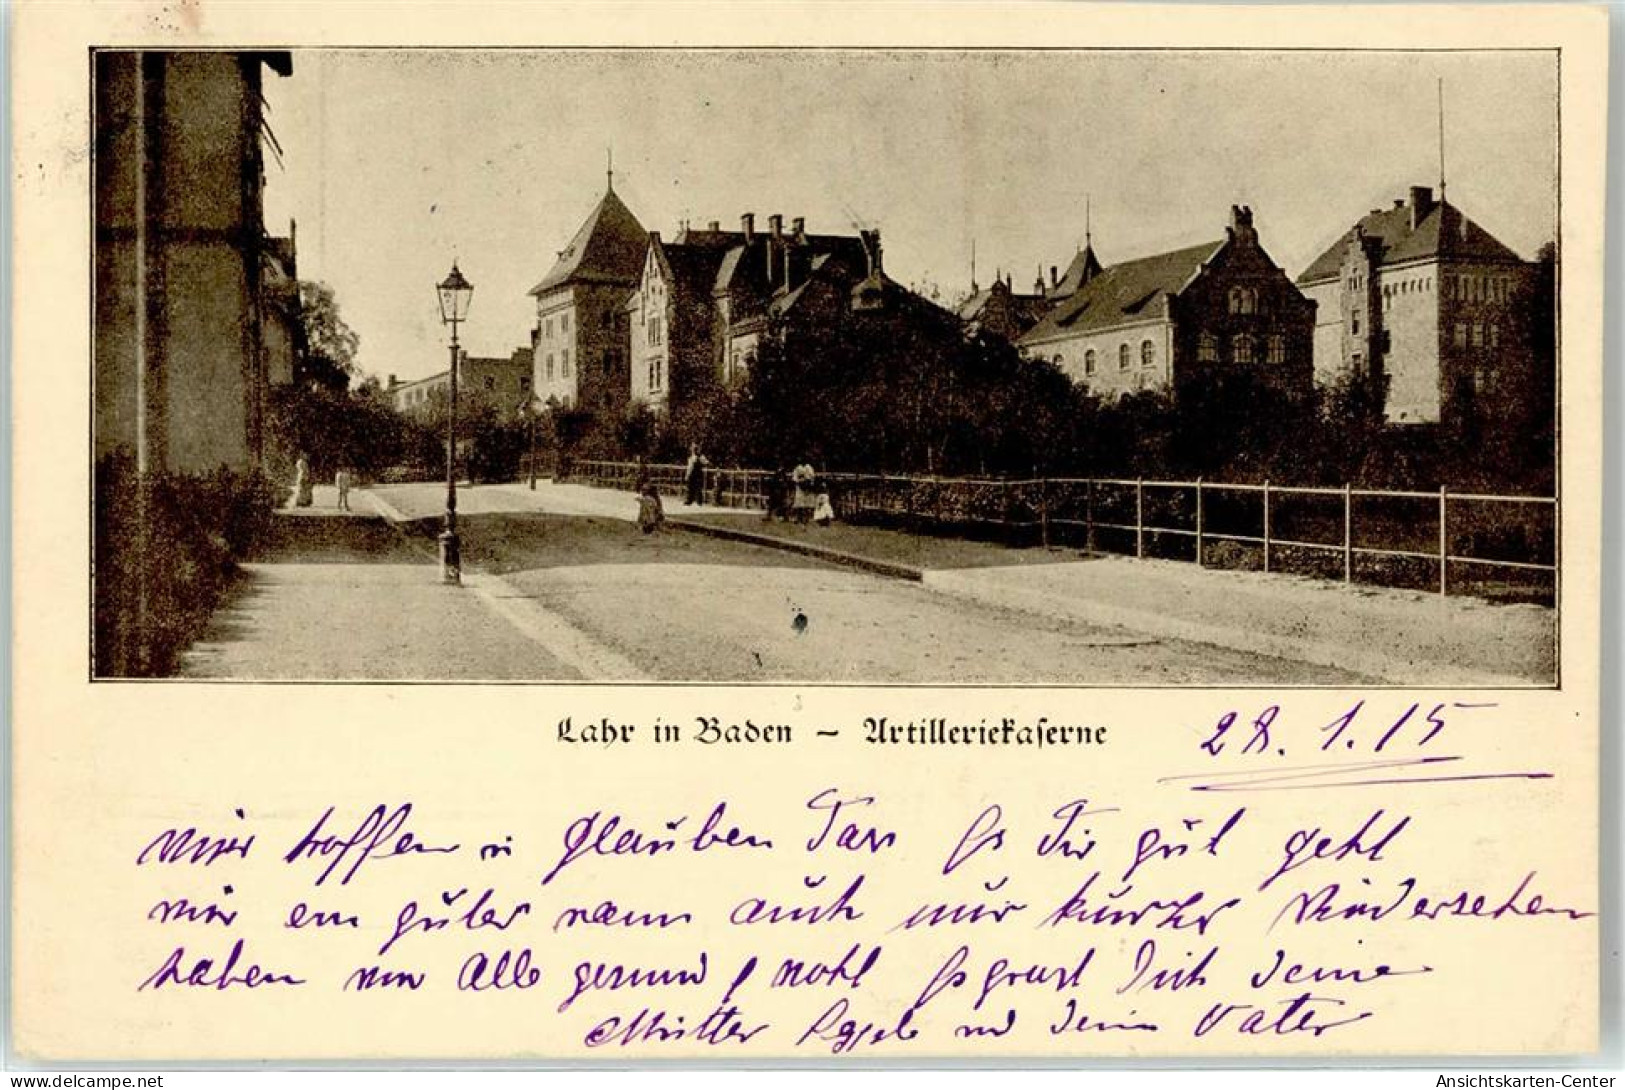 Lahr in Baden – Artilleriekaserne
28. 1. 15
wir hoffen u glauben Das Es Dir gut geht
wir ein gutes wenn auch nur kurzes Wiedersehen
haben wir Alle gesund wohl Es grüst Dich Deine
Mutter und Dein Vater
www.ansichtskarten-center.de
Ansichtskarten-Center